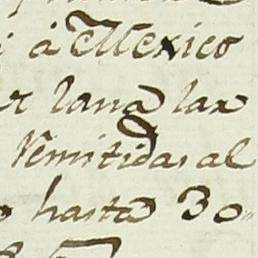 á Mexico
lana lax
Remitidas al
hasta 30